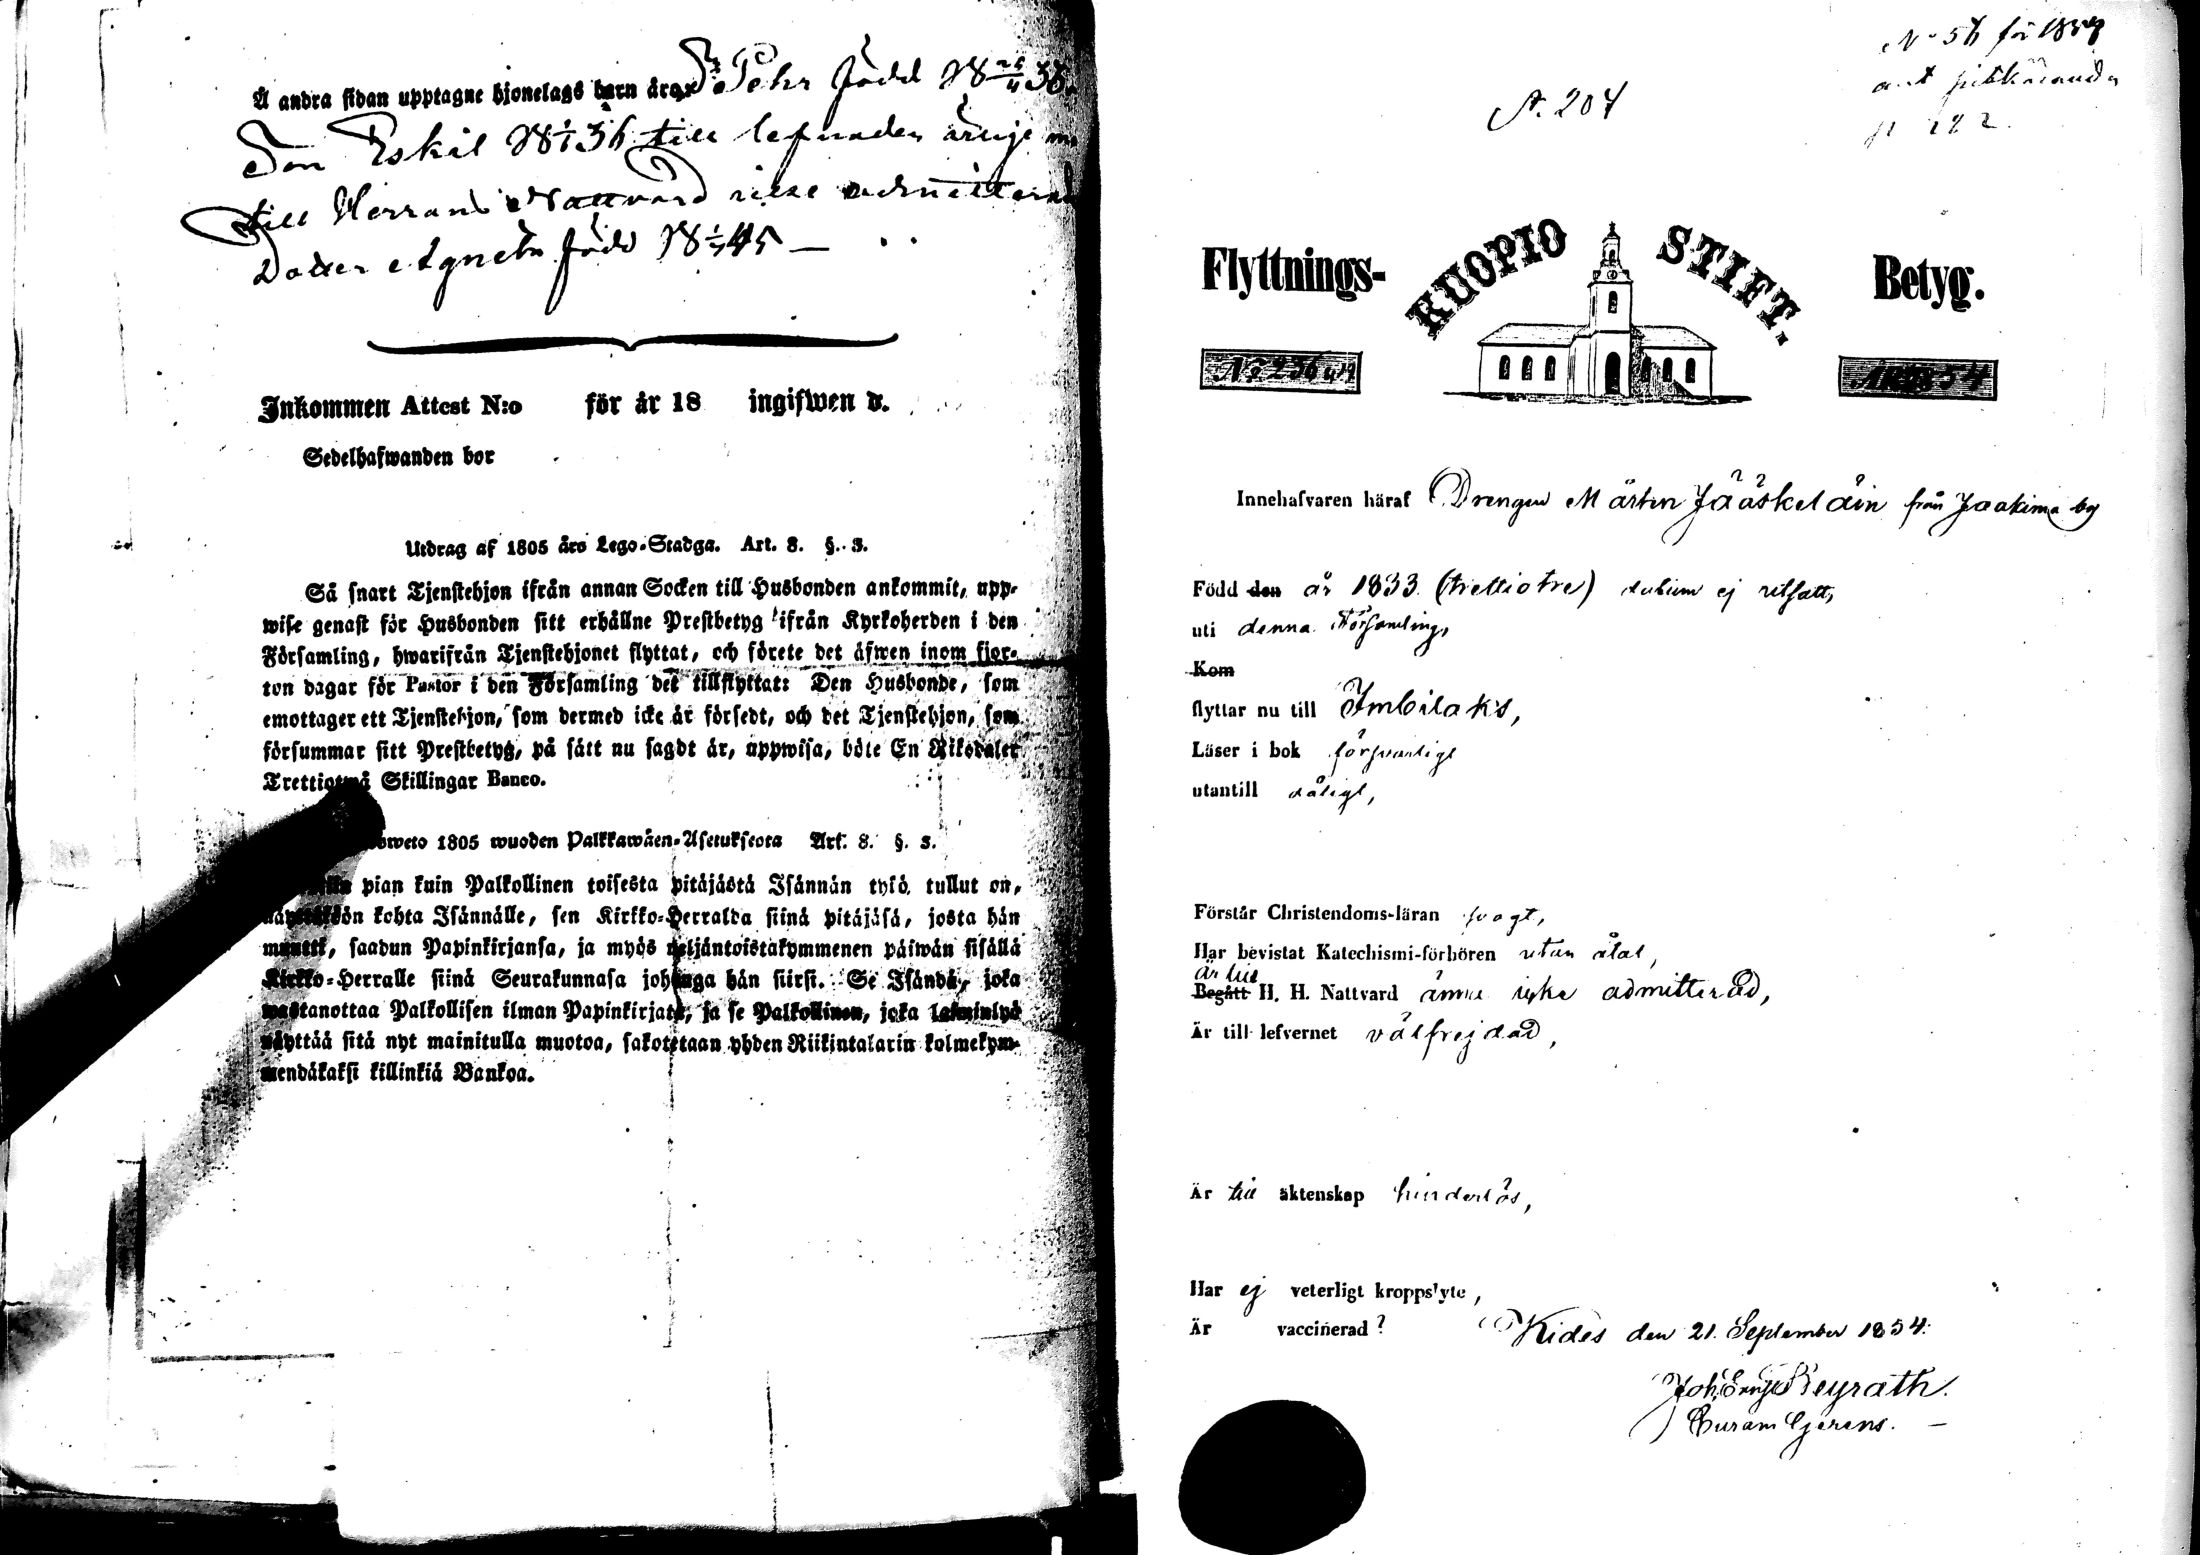 Å andra sidan upptagne hjonelags barn äro, Pehr född 18 26/11 33.
Son Eskil 18 1/1 36 till lefnaden ärlige
till Herrans Nattvard icke admitterad
Dotter Agneta född 18 1/7 45 —
Inkommen Attest N:o för år 18 ingifwen d.
Sedelhafwanden bor
Utdrag af 1805 års Lego-Stadga. Art. 8. §. 3.
Så snart Tjenstehjon ifrån annan Socken till Husbonden ankommit, upp-
wise genast för Husbonden sitt erhållne Prestbetyg ifrån Kyrkoherden i den
Församling, hwarifrån Tjenstehjonet flyttat, och förete det äfwen inom fjor-
ton dagar för Pastor i den Församling det tillflyttat: Den Husbonde, som
emottager ett Tjenstehjon, som dermed icke är försedt, och det Tjenstehjon, som
försummar sitt Prestbetyg, på sätt nu sagdt är, uppwisa, böte En Riksdaler
Trettiotwå Skillingar Banco.
1805 wuoden Palkkawäen-Asetuksesta Art. 8. §. 3.
pian kuin Palkollinen toisesta pitäjästä Isännän tykö tullut on,
kohta Isännälle, sen Kirkko-Herralda siinä pitäjäsä, josta hän
muutti, saadun Papinkirjansa, ja myös neljäntoistakymmenen päiwän sisällä
Kirkko-Herralle siinä Seurakunnasa johonga hän siirsi. Se Isändä, joka
wastanottaa Palkollisen ilman Papinkirjata, ja se Palkollinen, joka
näyttää sitä nyt mainitulla muotoa, sakotetaan yhden Riikintalarin kolmekym-
mendäkaksi killinkiä Bankoa.
N:o 56 för 1854
p 282.
A. 204
Flyttnings- KUOPIO STIFT. Betyg.
N:o 236 År 1854
Innehafvaren häraf Drengen Mårten Jääskeläin från Jaakima by
Född den år 1833. (trettiotre) datum ej utsatt,
uti denna Församling,
Kom
flyttar nu till Imbilaks,
Läser i bok försvarligt
utantill dåligt,
Förstår Christendoms-läran svagt,
Har bevistat Katechismi-förhören utan åtal,
Är till
Begått H. H. Nattvard ännu icke admitterad,
Är till lefvernet välfrejdad,
Är till äktenskap hinderlös,
Har ej veterligt kroppslyte,
Är vaccinerad?
Kides den 21. September 1854.
Joh. Ernst Beyrath.
Curam Gerens. —